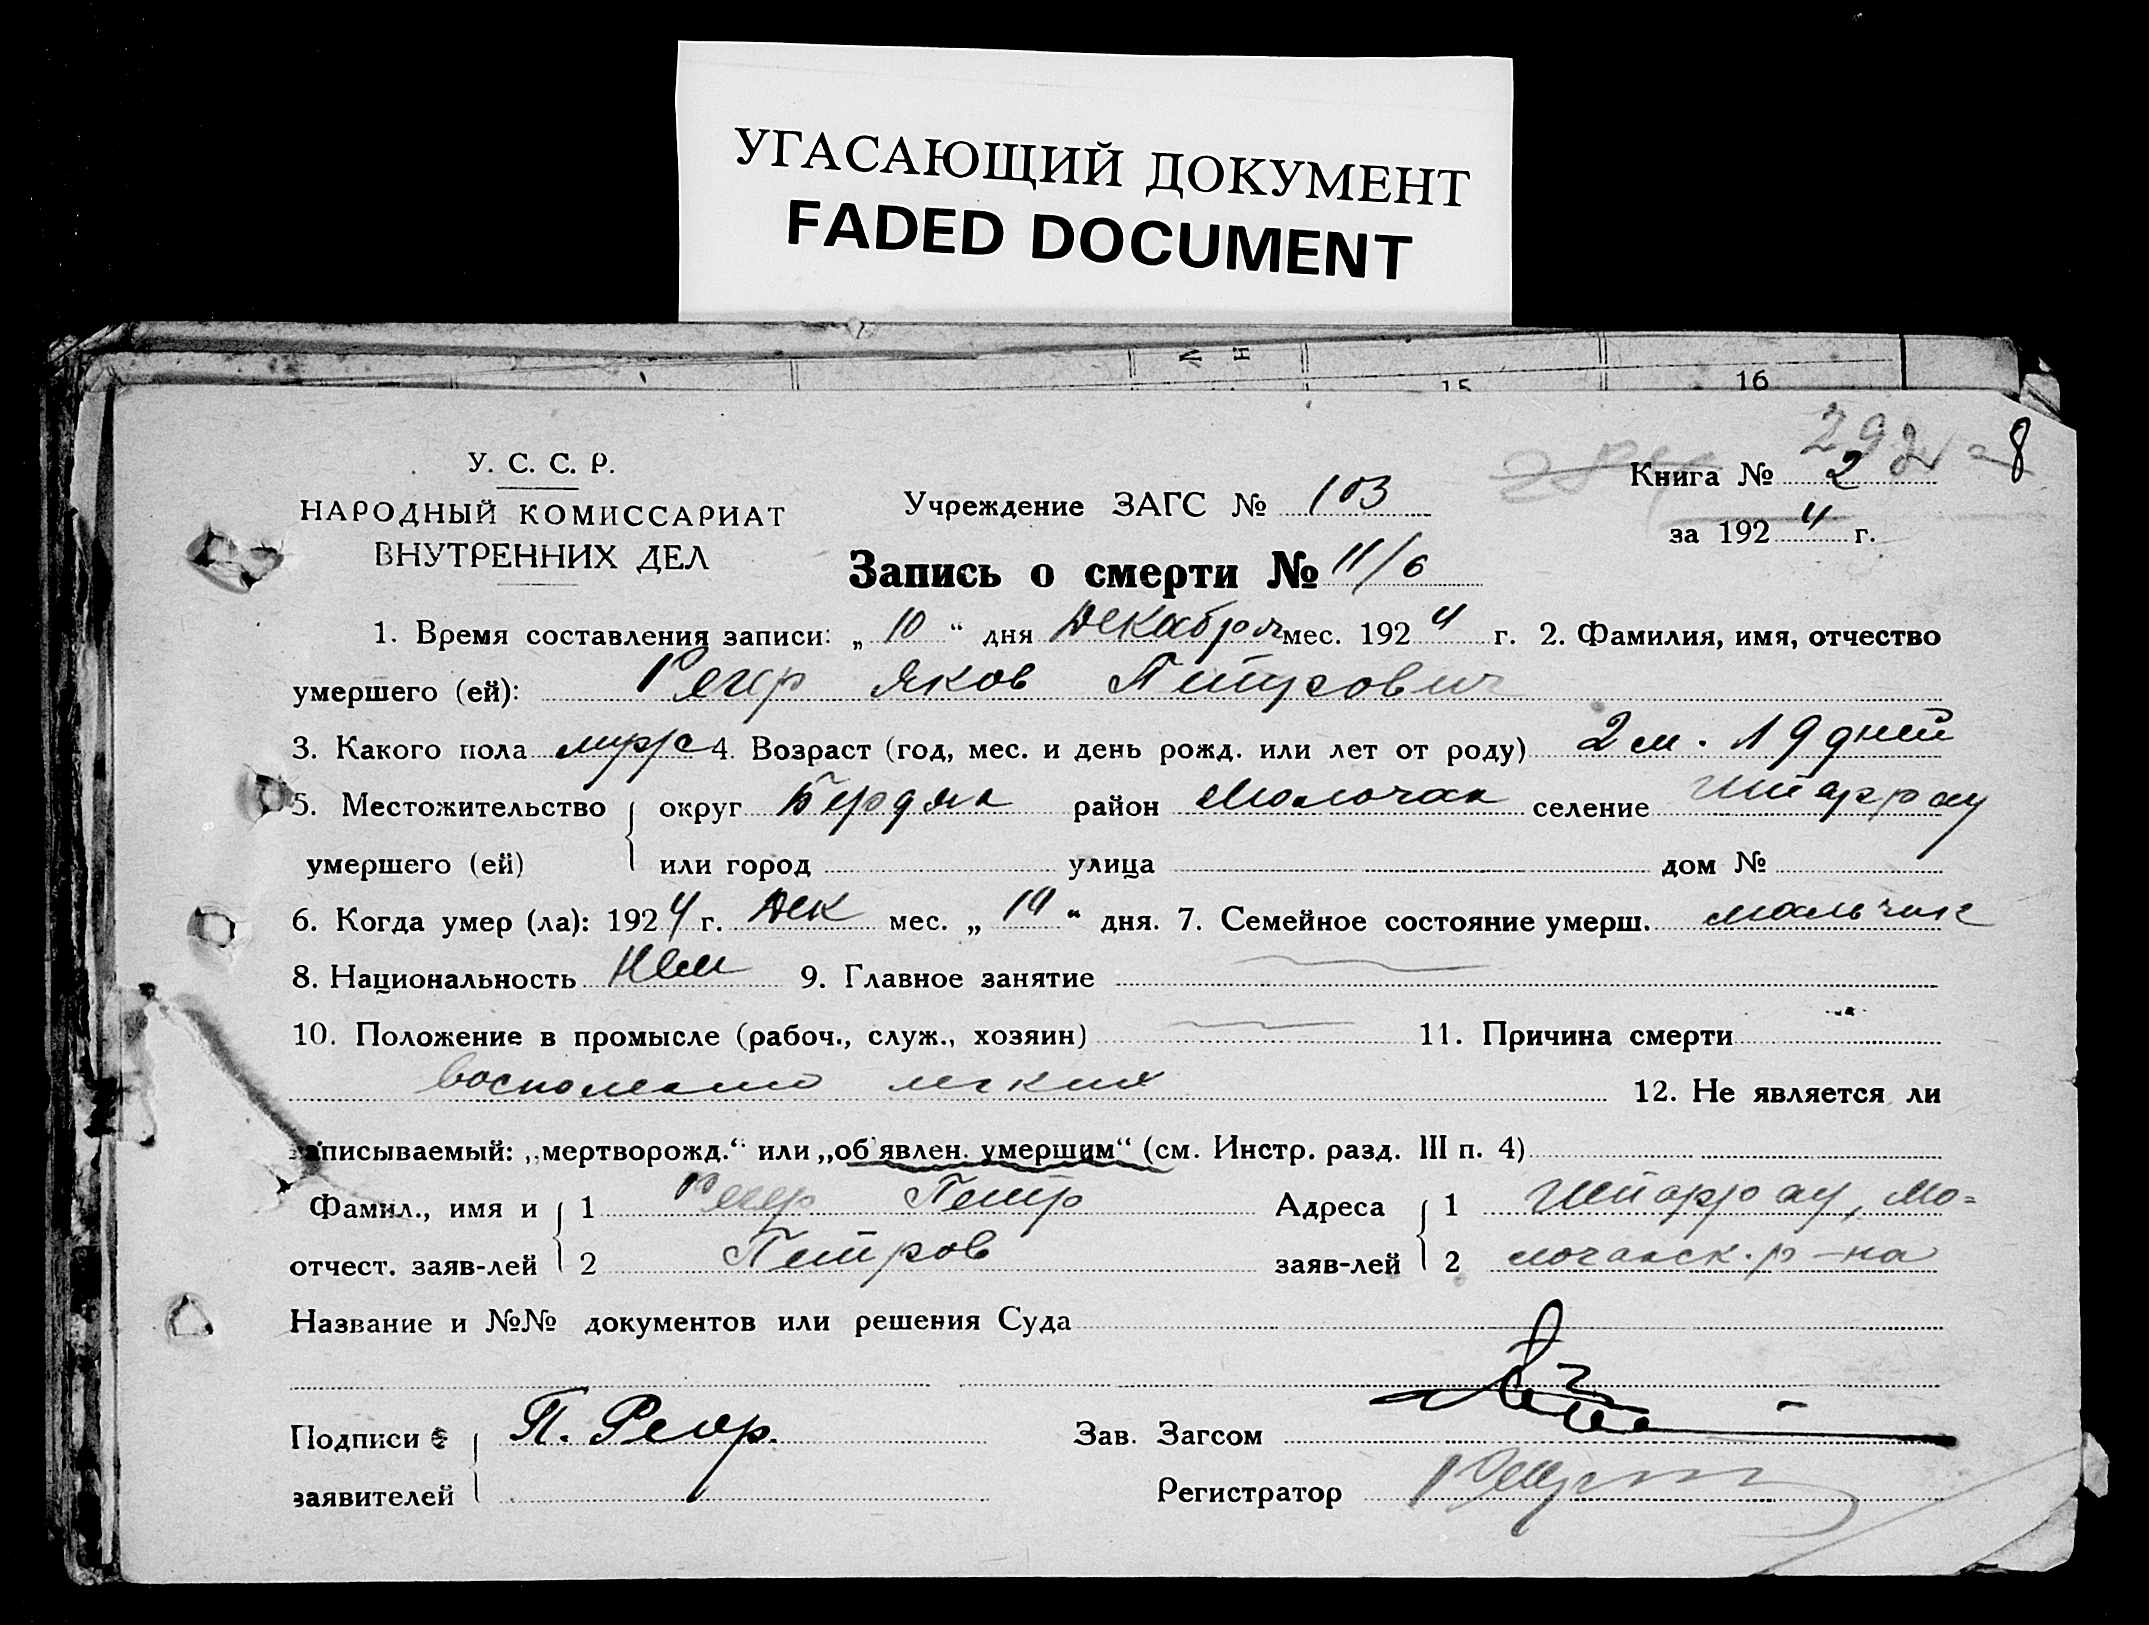 УГАСАЮЩИЙ ДОКУМЕНТ
FADED DOCUMENT
15 16
У. С. С. Р.
НАРОДНЫЙ КОМИССАРИАТ
ВНУТРЕННИХ ДЕЛ
Учреждение ЗАГС № 103
292 8
Книга № 2
за 1924 г.
Запись о смерти № 11/6
1. Время составления записи: „10“ дня Декабря мес. 1924 г. 2. Фамилия, имя, отчество
умершего (ей): Регер Яков Петрович
3. Какого пола мужс 4. Возраст (год, мес. и день рожд. или лет от роду) 2 м. 19 дней
5. Местожительство округ Бердян район Молочан селение Шпаррау
умершего (ей) или город улица дом №
6. Когда умер (ла): 1924 г. Дек мес. „10“ дня. 7. Семейное состояние умерш. мальчик
8. Национальность Нем 9. Главное занятие
10. Положение в промысле (рабоч., служ., хозяин) 11. Причина смерти
воспаление легких 12. Не является ли
записываемый: „мертворожд.“ или „об'явлен. умершим“ (см. Инстр. разд. III п. 4)
Фамил., имя и 1 Регер Петр Адреса 1 Шпаррау, Мо=
отчест. заяв-лей 2 Петров заяв-лей 2 лочанск. р-на
Название и №№ документов или решения Суда
Подписи П. Регер. Зав. Загсом
заявителей Регистратор